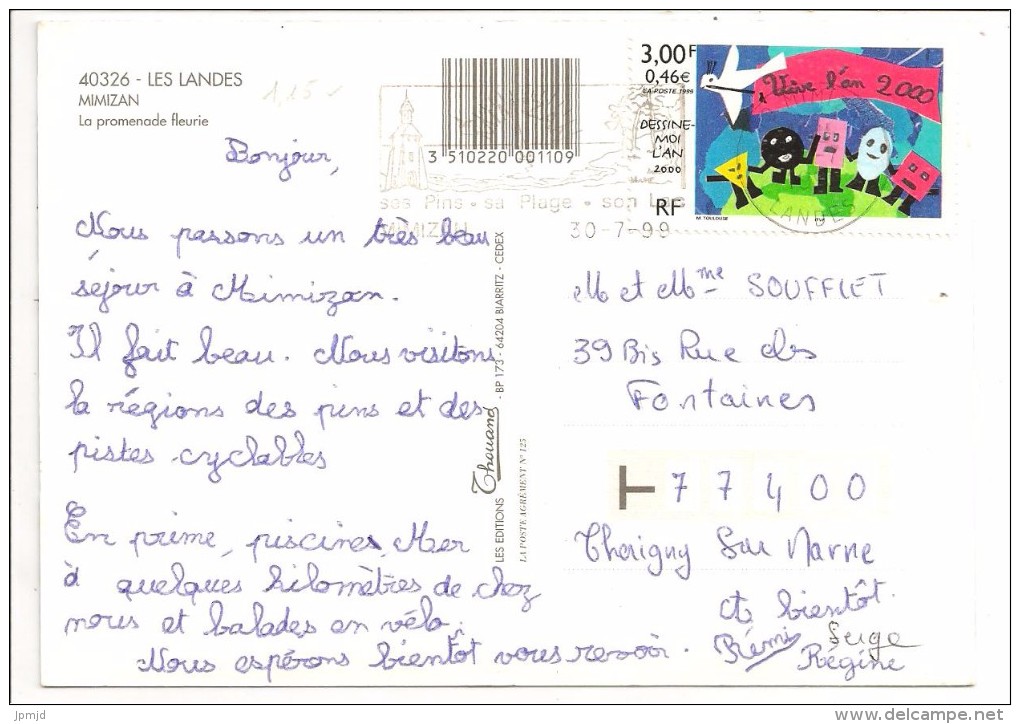 40326 - LES LANDES
MIMIZAN
La promenade fleurie
1,15
3 510220 001109
ses Pins - sa Plage - son Lac
MIMIZAN
30-7-99
3,00F
0,46€
LA POSTE 1999
DESSINE-
MOI
L'AN
2000
RF
Vive l'an 2000
M. TOULOUSE
LANDES
Bonjour,
Nous passons un très beau
séjour à Mimizan.
Il fait beau. Nous visitons
la régions des pins et des
pistes cyclables
En prime, piscines, Mer
à quelques kilomètres de chez
nous et balades en vélo.
Nous espérons bientôt vous revoir.
LES EDITIONS Thouand - BP 173 - 64204 BIARRITZ - CEDEX
LA POSTE AGRÉMENT N° 125
M et Mme SOUFFLET
39 Bis Rue des
Fontaines
T 77400
Thorigny Sur Marne
A bientôt.
Rémi Serge
Régine
jpmjd
www.delcampe.net